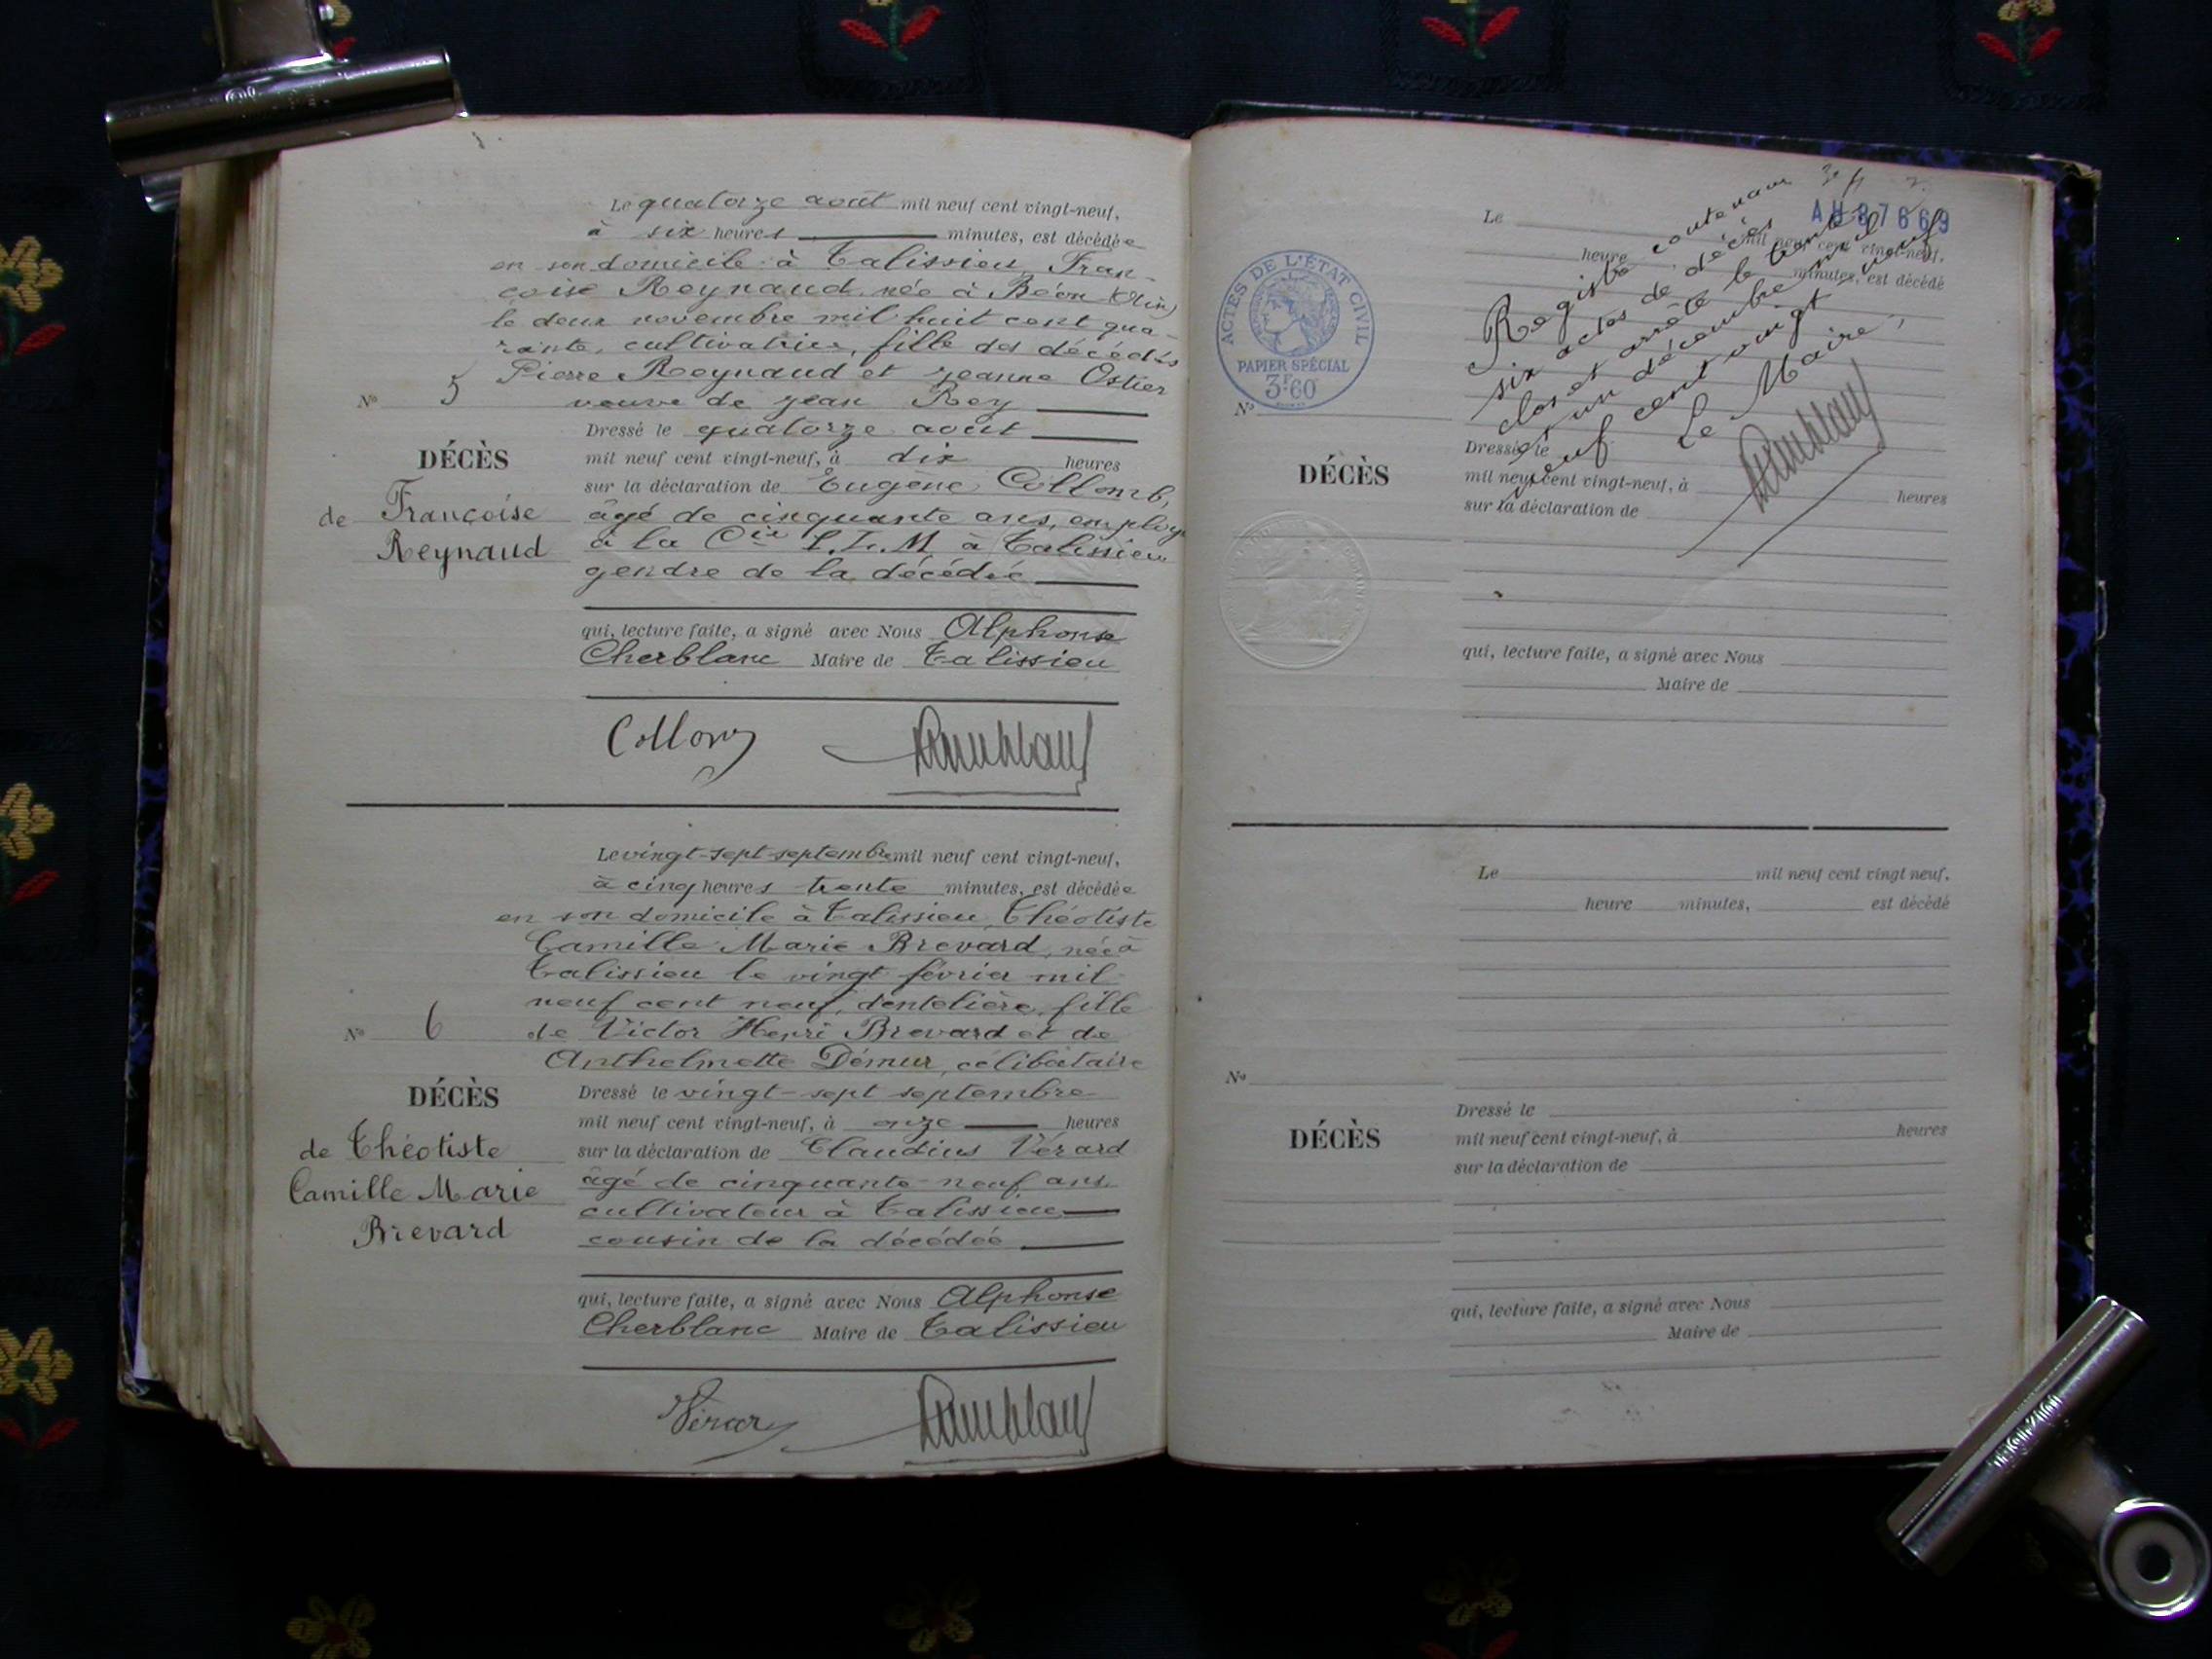 Le quatorze août mil neuf cent vingt-neuf,
à six heures minutes, est décédée
en son domicile à Talissieu, Fran-
çoise Reynaud, née à Béon (Ain)
le deux novembre mil huit cent qua-
rante, cultivatrice, fille des décédés
Pierre Reynaud et Jeanne Ostier
veuve de Jean Rey
N° 5
Dressé le quatorze août
DÉCÈS
mil neuf cent vingt-neuf, à dix heures
sur la déclaration de Eugène Collomb,
de Françoise
âgé de cinquante ans, employé
Reynaud
à la Cie P.L.M. à Talissieu
gendre de la décédée
qui, lecture faite, a signé avec Nous Alphonse
Cherblanc Maire de Talissieu
Collomb
Cherblanc
Le vingt-sept septembre mil neuf cent vingt-neuf,
à cinq heures trente minutes, est décédée
en son domicile à Talissieu, Théotiste
Camille Marie Brevard, née à
Talissieu le vingt février mil
neuf cent neuf, dentelière, fille
N° 6
de Victor Henri Brevard et de
Anthelmette Démur, célibataire
DÉCÈS
Dressé le vingt-sept septembre
mil neuf cent vingt-neuf, à onze heures
de Théotiste
sur la déclaration de Claudius Vérard
Camille Marie
âgé de cinquante-neuf ans,
Brevard
cultivateur à Talissieu
cousin de la décédée
qui, lecture faite, a signé avec Nous Alphonse
Cherblanc Maire de Talissieu
Vérard
Cherblanc
AU37669
Le mil neuf cent vingt-neuf,
heure minutes, est décédé
Registre contenant
six actes de décès
clos et arrêté le trente
et un décembre mil
neuf cent vingt neuf
Le Maire,
Cherblanc
ACTES DE L'ÉTAT CIVIL
PAPIER SPÉCIAL
3F60
N°
DÉCÈS
Dressé le
mil neuf cent vingt-neuf, à heures
sur la déclaration de
qui, lecture faite, a signé avec Nous
Maire de
Le mil neuf cent vingt neuf,
heure minutes, est décédé
N°
DÉCÈS
Dressé le
mil neuf cent vingt-neuf, à heures
sur la déclaration de
qui, lecture faite, a signé avec Nous
Maire de